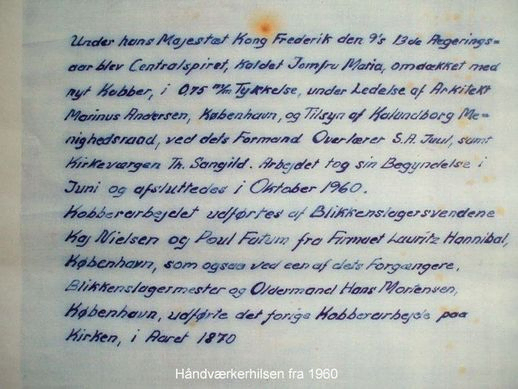 Under hans Majestæt Kong Frederik den 9's 13de Regerings-
aar blev Centralspiret, kaldet Jomfru Maria, omdækket med
nyt Kobber, i 0,75 m/m Tykkelse, under Ledelse af Arkitekt
Marinus Andersen, København, og Tilsyn af Kalundborg Me-
nighedsraad, ved dets Formand Overlærer S.A. Juul, samt
Kirkeværgen Th. Sangild. Arbejdet tog sin Begyndelse i
Juni og afsluttedes i Oktober 1960.
Kobberarbejdet udførtes af Blikkenslagersvendene
Kaj Nielsen og Poul Fatum fra Firmaet Lauritz Hannibal,
København, som ogsaa ved een af dets Forgængere,
Blikkenslagermester og Oldermand Hans Mortensen,
København, udførte det forige Kobberarbejde paa
Kirken, i Aaret 1870
Håndværkerhilsen fra 1960